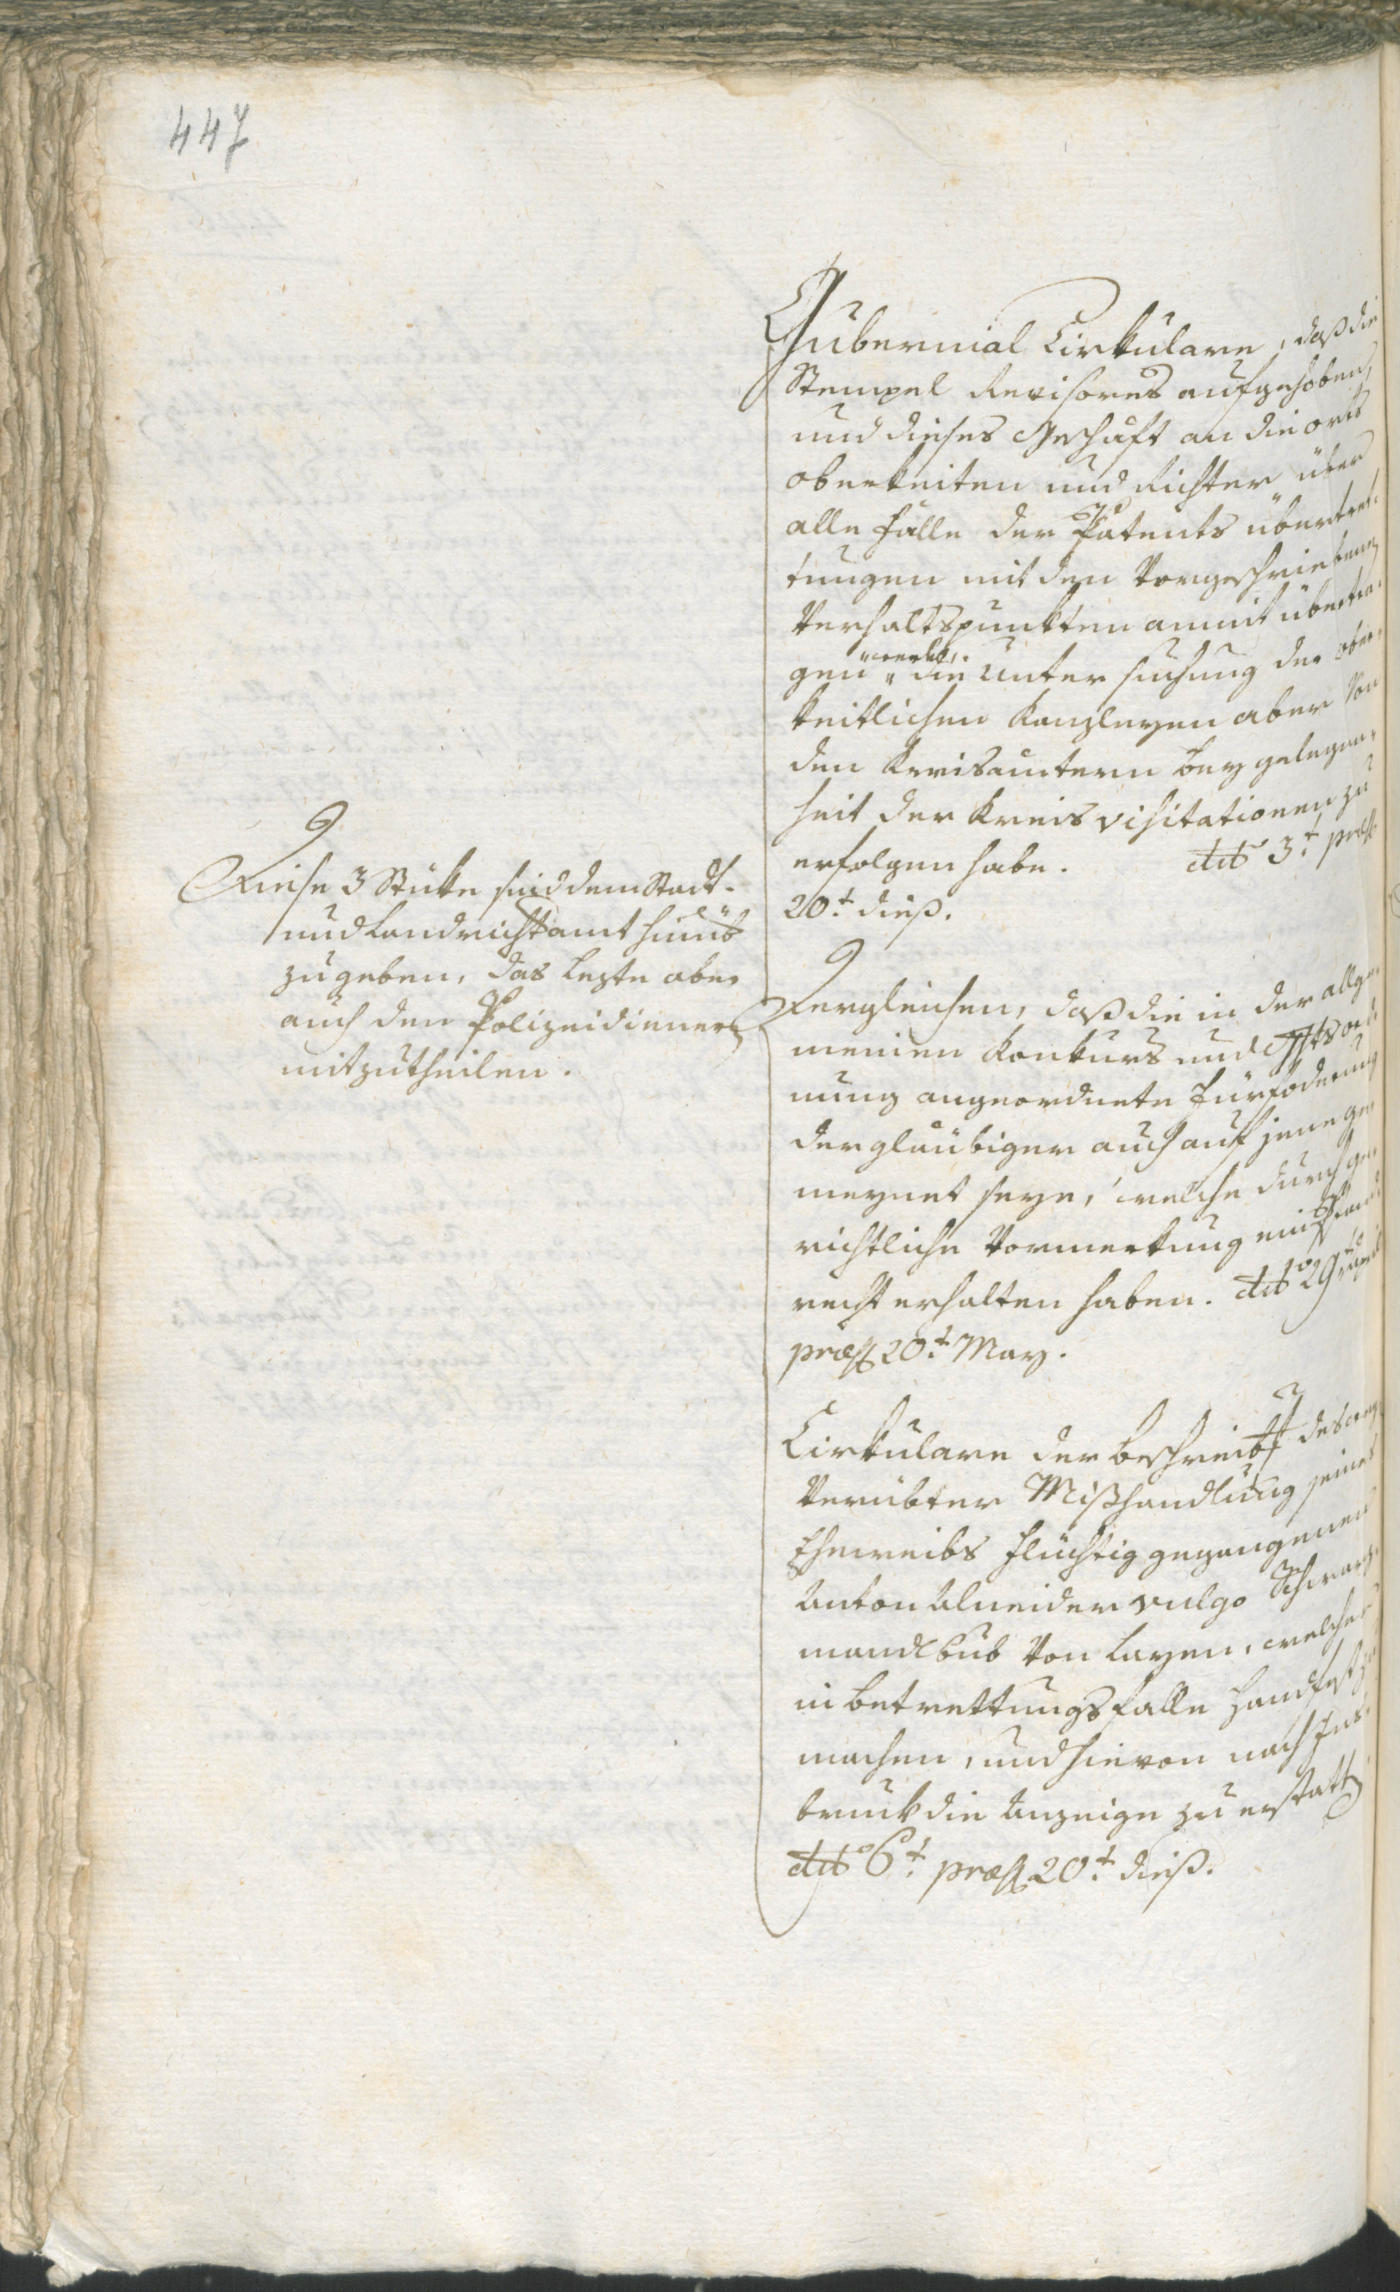 447
Gubernial Cirkulare, daß die
Stempel Revisores aufgehoben,
und dieses Geschäft an die orts
oberkeiten und Richter über
alle Fälle der Patents übertret-
tungen mit den Vorgeschriebenen
Verhaltspunkten anmit übertra-
gen werde, die Untersuchung der ober-
keitlichen Kanzleyen aber Von
den Kreisämtern bey gelegen-
heit der Kreis visitationen zu
erfolgen habe. dtto 3t præs
20t dieß.
Diese 3 Stüke sind dem Stadt-
und Landrichteramt hinüb
zugeben, das lezte aber
auch den Polizeidienern
mitzutheilen.
Dergleichen, daß die in der allge-
meinen Konkurs und
nung angeordnete Fürfoderung
der gläubiger auch auf jene ge-
meynet seye, welche durch ge-
richtliche Vormerkung ein Pfand
recht erhalten haben. dtto 29t April
præs 20t May.
Cirkulare der beschreibg des weg
Verübter Mißhandlung seines
Eheweibs flüchtig gegangenen
Anton Alneider vulgo Schwarz-
mandlbub Von Layen, welcher
in betrettungsfalle Handfest zu
machen, und hievon nach Ins-
bruck die Anzeige zu erstatten
dtto 6t præs 20t dieß.